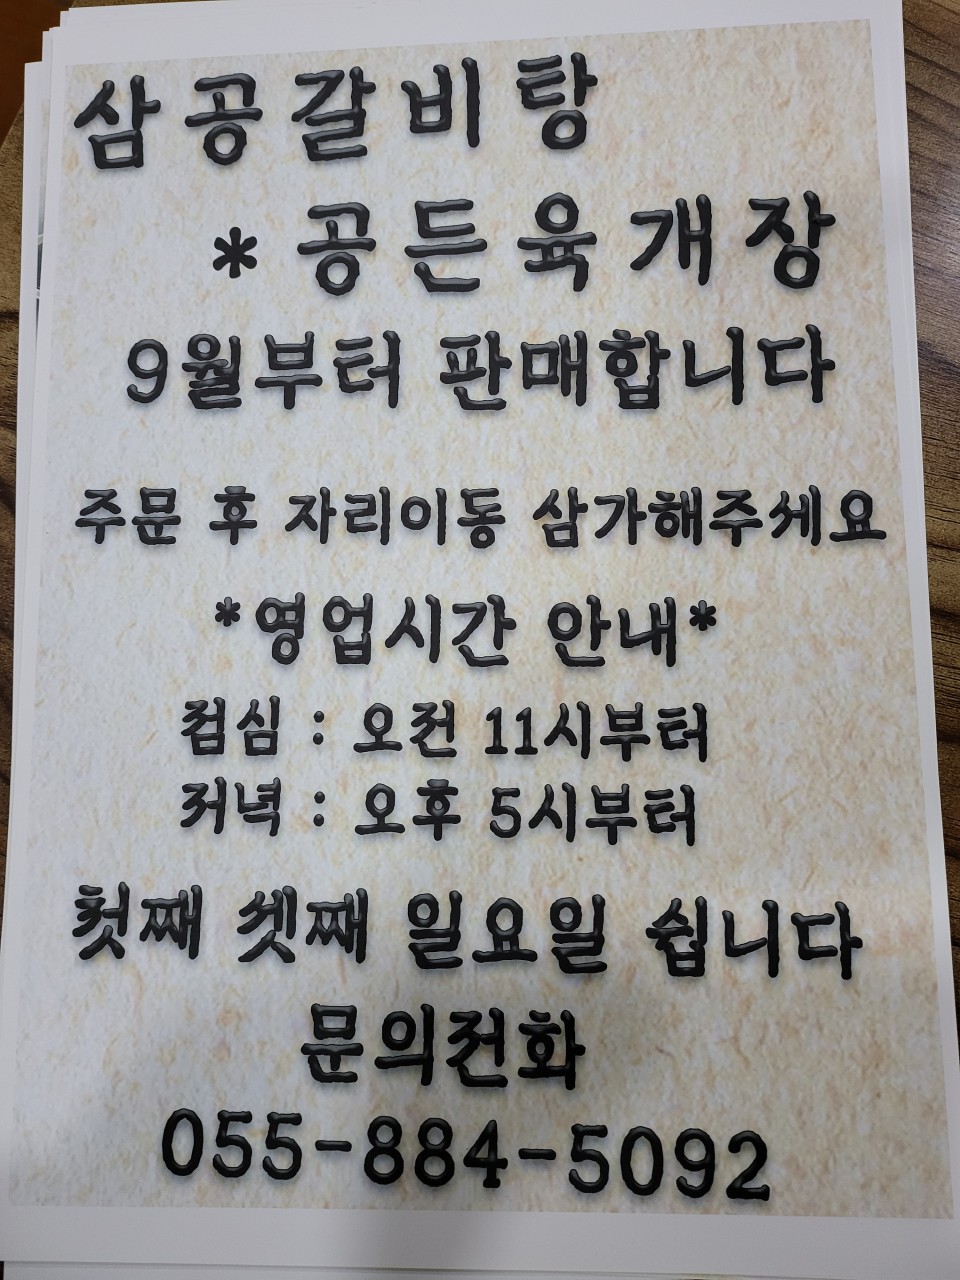 삼공갈비탕
*공든육개장
9월부터 판매합니다
주문 후 자리이동 삼가해주세요
*영업시간 안내*
점심 : 오전 11시부터
저녁 : 오후 5시부터
첫째 셋째 일요일 쉽니다
문의전화
055-884-5092